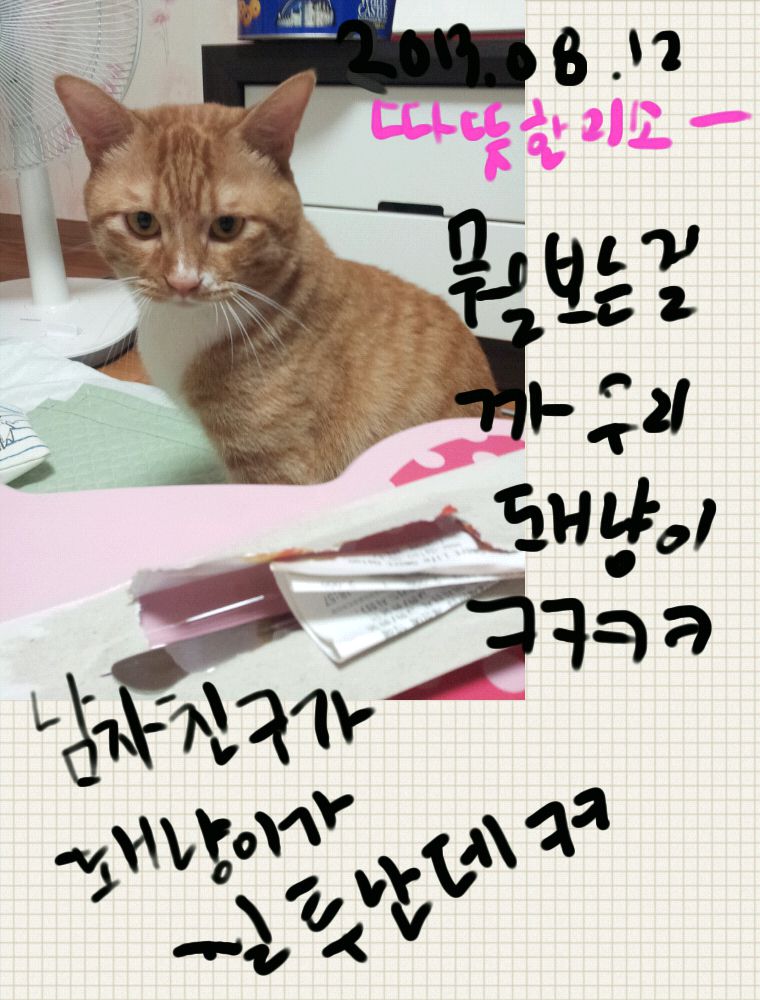 2013.08.12
따뜻할미소ㅡ
뭘보는걸
까 우리
돼냥이
ㅋㅋㅋㅋ
남자친구가
돼냥이가
질투난데 ㅋㅋ